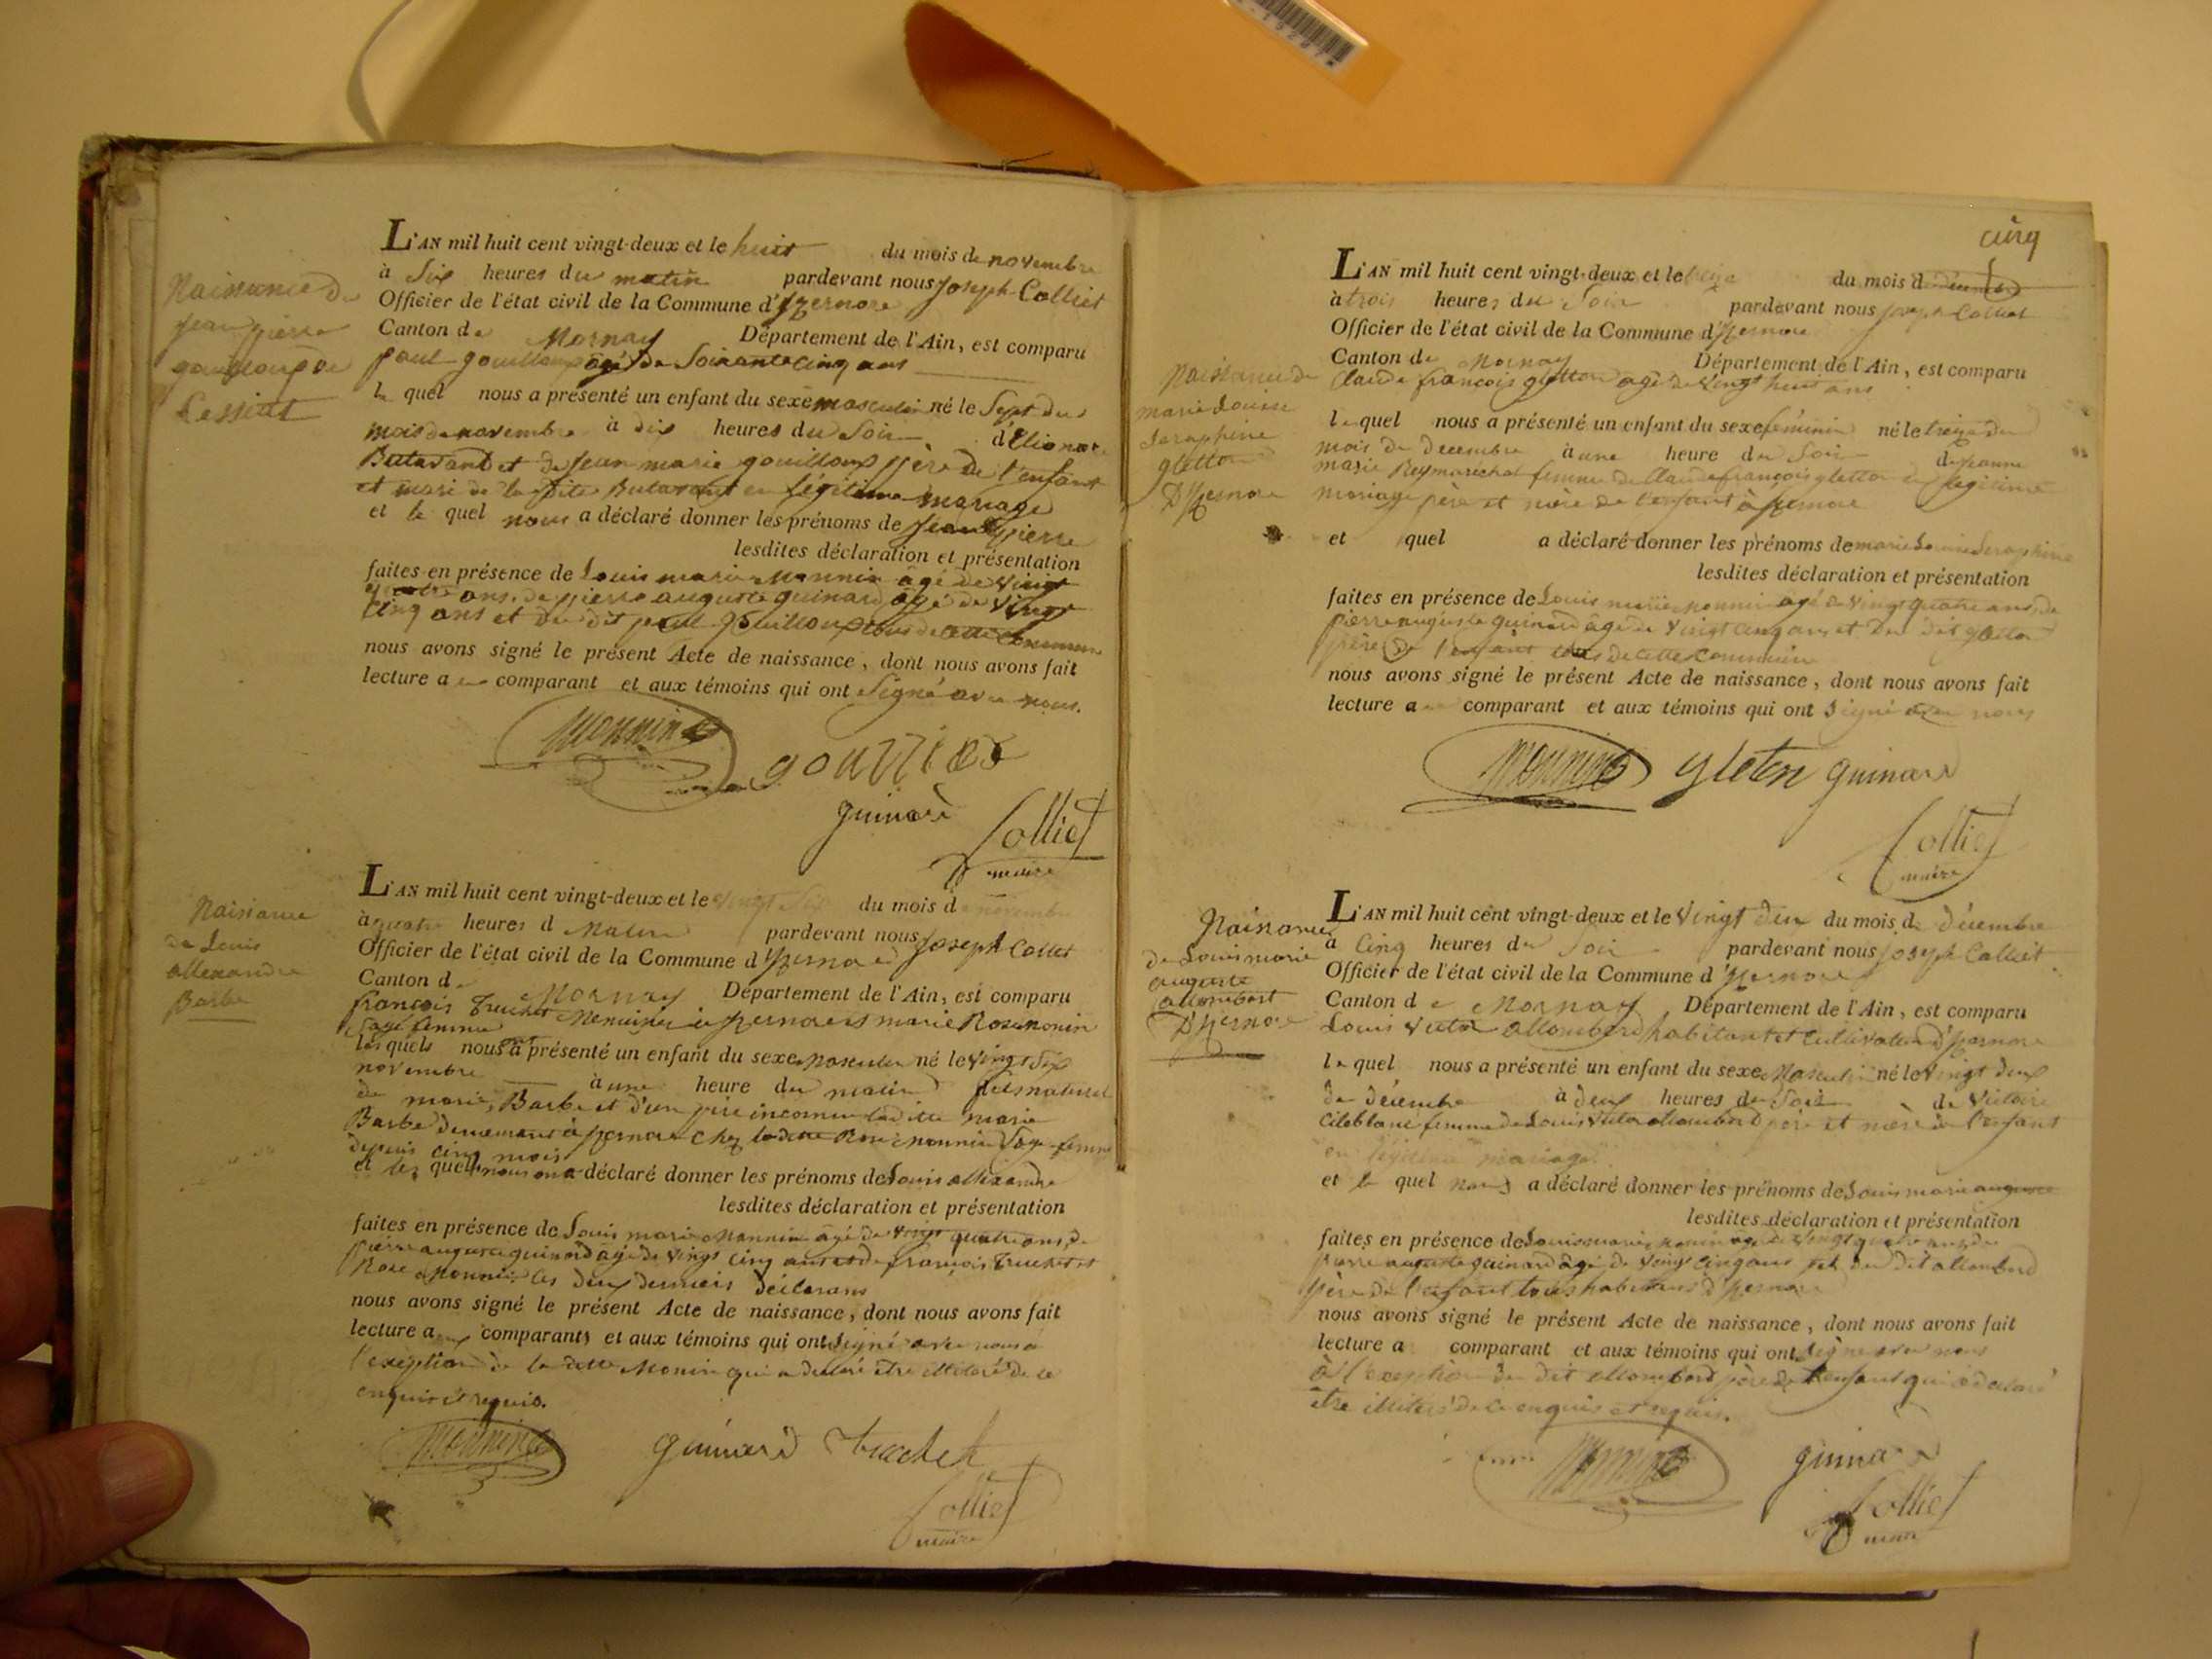 Naissance de
jean pierre
gouilloux de
Cessiat
L'AN mil huit cent vingt-deux et le huit du mois de novembre
à Six heures du matin pardevant nous Joseph Colliet
Officier de l'état civil de la Commune d'Yzernore
Canton de Mornay Département de l'Ain, est comparu
paul gouilloux agé de Soixante cinq ans
le quel nous a présenté un enfant du sexe masculin né le Sept du
mois de novembre à dix heures du Soir d'Elionore
Butavant et de Jean marie gouilloux père de l'enfant
et mari de la dite Butavant en légitime mariage
et le quel nous a déclaré donner les prénoms de jean pierre
lesdites déclaration et présentation
faites en présence de Louis marie Monnin agé de vingt
quatre ans, de pierre auguste guinard agé de vingt
cinq ans et du dit paul gouilloux tous de cette Commune
nous avons signé le présent Acte de naissance, dont nous avons fait
lecture a comparant et aux témoins qui ont Signé avec nous.
Monnin
guinard
Colliet
maire
Naissance
de Louis
allexandre
Barbe
L'AN mil huit cent vingt-deux et le vingt Six du mois d novembre
à quatre heures d Matin pardevant nous Joseph Colliet
Officier de l'état civil de la Commune d'Yzernore
Canton de Mornay Département de l'Ain, est comparu
françois Truchet Menuisier à yzernore et marie Rose monin
Sage femme
les quels nous ont présenté un enfant du sexe masculin né le vingt Six
novembre à une heure du matin fils naturel
de marie Barbe et d'un père inconnu ladite marie
Barbe demeurant à yzernore chez ladite Rose monnin Sage-femme
depuis cinq mois
et les quels nous ont déclaré donner les prénoms de Louis allexandre
lesdites déclaration et présentation
faites en présence de Louis marie Monnin agé de vingt quatre ans, de
pierre auguste guinard agé de vingt cinq ans et de françois Truchet et
Rose Monnin les deux derniers déclarans
nous avons signé le présent Acte de naissance, dont nous avons fait
lecture aux comparants et aux témoins qui ont signé avec nous à
l'exception de la dite Monin qui a déclaré être illitéré de ce
enquis et requis.
Monnin
guinard Truchet
Colliet
maire
cinq
Naissance de
marie Louise
Seraphine
gletton
D'Yzernore
L'AN mil huit cent vingt-deux et le treize du mois d décembre
à trois heures du Soir pardevant nous joseph Colliet
Officier de l'état civil de la Commune d'Yzernore
Canton de Mornay Département de l'Ain, est comparu
Claude françois gletton agé de vingt huit ans
le quel nous a présenté un enfant du sexe féminin né le treize du
mois de decembre à une heure du Soir de jeanne
marie Reymarechal femme de Claude françois gletton en légitime
mariage père et mère de l'enfant à yzernore
et quel a déclaré donner les prénoms de marie Louise Seraphine
lesdites déclaration et présentation
faites en présence de Louis marie Monnin agé de vingt quatre ans, de
pierre auguste guinard agé de vingt cinq ans et du dit gletton
père de l'enfant tous de cette commune
nous avons signé le présent Acte de naissance, dont nous avons fait
lecture a comparant et aux témoins qui ont Signé avec nous
Monnin gleton guinard
Colliet
maire
Naissance
de Louis marie
auguste
allombert
D'Yzernore
L'AN mil huit cent vingt-deux et le vingt deux du mois de décembre
à Cinq heures du Soir pardevant nous Joseph Colliet
Officier de l'état civil de la Commune d'Yzernore
Canton de Mornay Département de l'Ain, est comparu
Louis victor allombert habitant et cultivateur d'Yzernore
le quel nous a présenté un enfant du sexe Masculin né le vingt deux
de décembre à deux heures du Soir de victoire
femme de Louis victor allombert père et mère de l'enfant
en légitime mariage
et le quel nous a déclaré donner les prénoms de Louis marie auguste
lesdites déclaration et présentation
faites en présence de Louis marie Monnin agé de vingt quatre ans, de
pierre auguste guinard agé de vingt cinq ans et du dit allombert
père de l'enfant tous habitans d'Yzernore
nous avons signé le présent Acte de naissance, dont nous avons fait
lecture a comparant et aux témoins qui ont signé avec nous
à l'exception du dit allombert père de l'enfant qui a déclaré
être illitéré de ce enquis et requis.
Monnin guinard
Colliet
maire